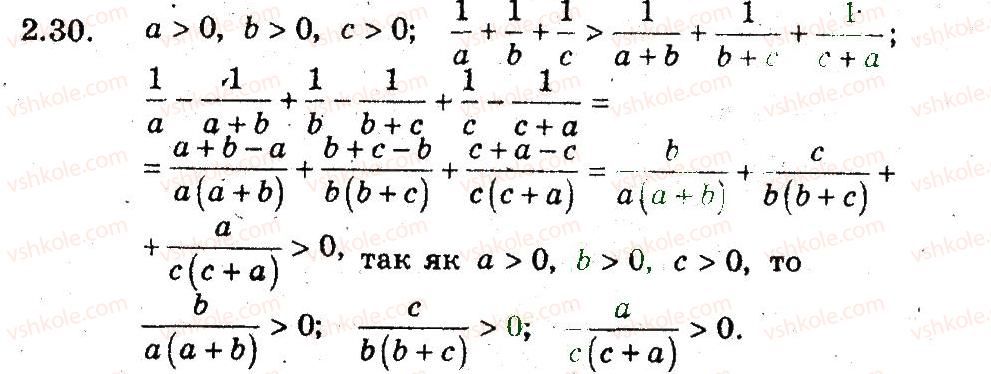 2.30. a > 0, b > 0, c > 0; 1/a + 1/b + 1/c > 1/(a + b) + 1/(b + c) + 1/(c + a);
1/a − 1/(a + b) + 1/b − 1/(b + c) + 1/c − 1/(c + a) =
= (a + b − a)/(a(a + b)) + (b + c − b)/(b(b + c)) + (c + a − c)/(c(c + a)) = b/(a(a + b)) + c/(b(b + c)) +
+ a/(c(c + a)) > 0, так як a > 0, b > 0, c > 0, то
b/(a(a + b)) > 0; c/(b(b + c)) > 0; a/(c(c + a)) > 0.